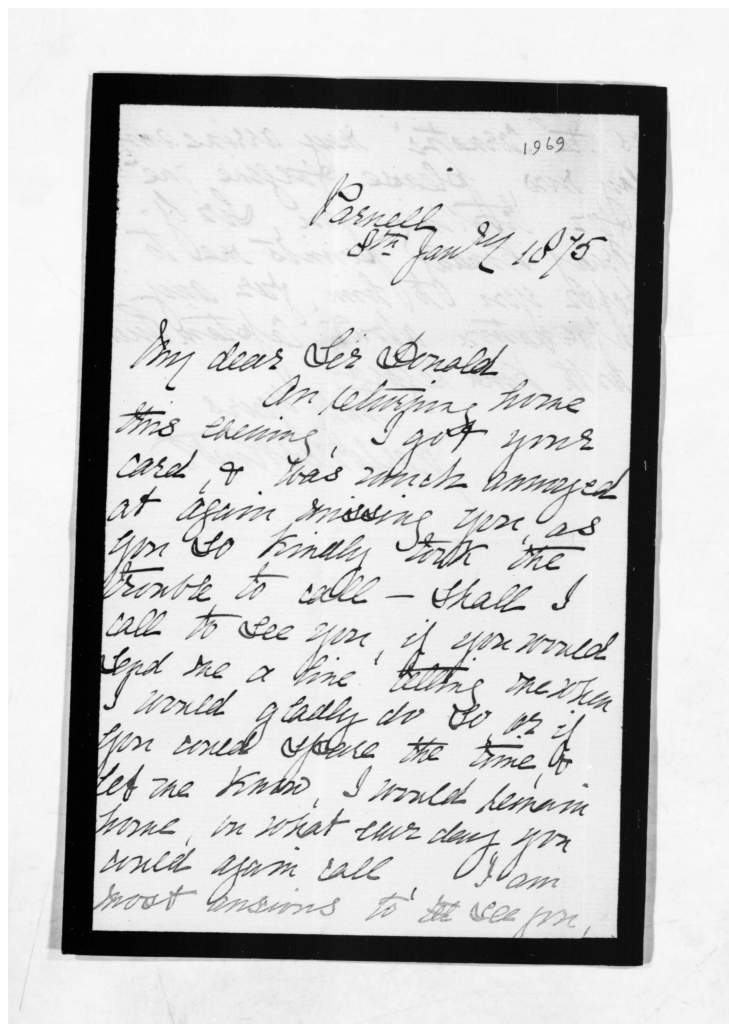 1969
Parnell
8th Jany 1875
My dear Sir Donald
On returning home
this evening, I got your
card, & was much annoyed
at again missing you, as
you so kindly took the
trouble to call – shall I
call to see you, if you would
send me a line telling me when
I would gladly do so, or if
you could spare the time, &
let me know, I would remain
home, on what ever day you
could again call I am
most anxious to see you,